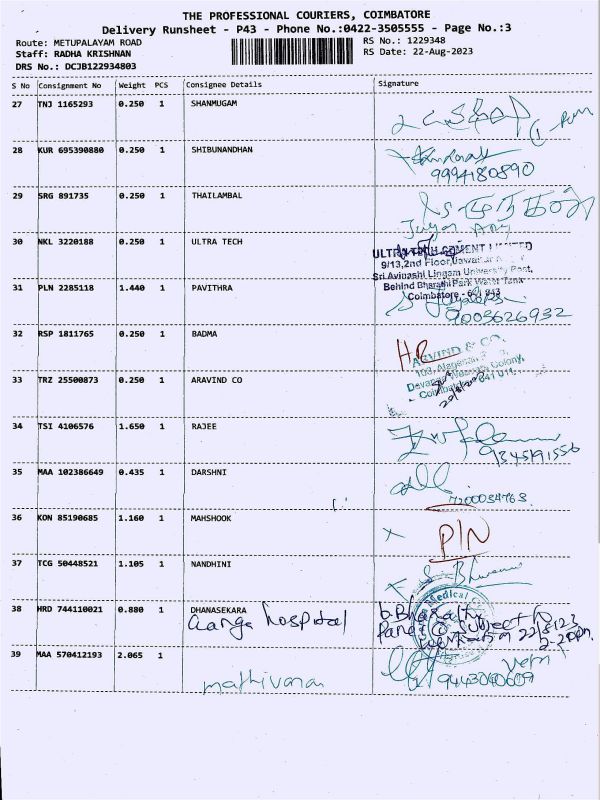 THE PROFESSIONAL COURIERS, COIMBATORE
Delivery Runsheet - P43 - Phone No.:0422-3505555 - Page No.:3
Route: METUPALAYAM ROAD
RS No.: 1229348
Staff: RADHA KRISHNAN
RS Date: 22-Aug-2023
DRS No.: DCJB122934803
S No Consignment No Weight PCS Consignee Details Signature
27 TNJ 1165293 0.250 1 SHANMUGAM
28 KUR 695390880 0.250 1 SHIBUNANDHAN
9994180890
29 SRG 891735 0.250 1 THAILAMBAL
30 NKL 3220188 0.250 1 ULTRA TECH
ULTRATECH CEMENT LIMITED
9/13,2nd Floor,
Sri Avinashi Lingam University Post,
31 PLN 2285118 1.440 1 PAVITHRA
Behind Bharathi Park Water Tank
Coimbatore - 641 043
9003626932
32 RSP 1811765 0.250 1 BADMA
HR
ARVIND & CO.
33 TRZ 25500873 0.250 1 ARAVIND CO
Colony,
34 TSI 4106576 1.650 1 RAJEE
9345191556
35 MAA 102386649 0.435 1 DARSHNI
7200034763
36 KON 85190685 1.160 1 MAHSHOOK
PIN
37 TCG 50448521 1.105 1 NANDHINI
38 HRD 744110021 0.880 1 DHANASEKARA
Ganga hospital
Medical
39 MAA 570412193 2.065 1
mathivanan
9443040609